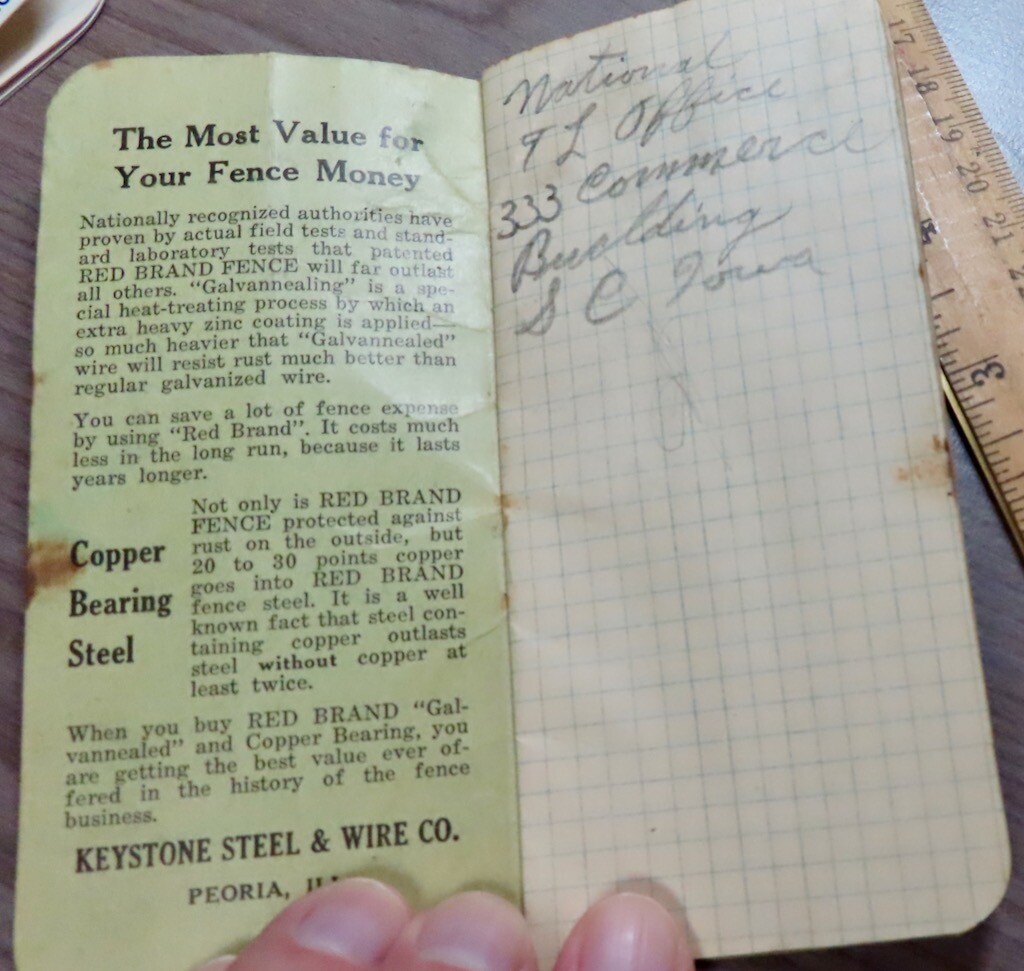 The Most Value for
Your Fence Money
Nationally recognized authorities have
proven by actual field tests and stand-
ard laboratory tests that patented
RED BRAND FENCE will far outlast
all others. “Galvannealing” is a spe-
cial heat-treating process by which an
extra heavy zinc coating is applied—
so much heavier that “Galvannealed”
wire will resist rust much better than
regular galvanized wire.
You can save a lot of fence expense
by using “Red Brand”. It costs much
less in the long run, because it lasts
years longer.
Copper
Bearing
Steel
Not only is RED BRAND
FENCE protected against
rust on the outside, but
20 to 30 points copper
goes into RED BRAND
fence steel. It is a well
known fact that steel con-
taining copper outlasts
steel without copper at
least twice.
When you buy RED BRAND “Gal-
vannealed” and Copper Bearing, you
are getting the best value ever of-
fered in the history of the fence
business.
KEYSTONE STEEL & WIRE CO.
PEORIA,
National
L Office
333 Commerce
Building
S C Iowa
17 18 19 20 21
3